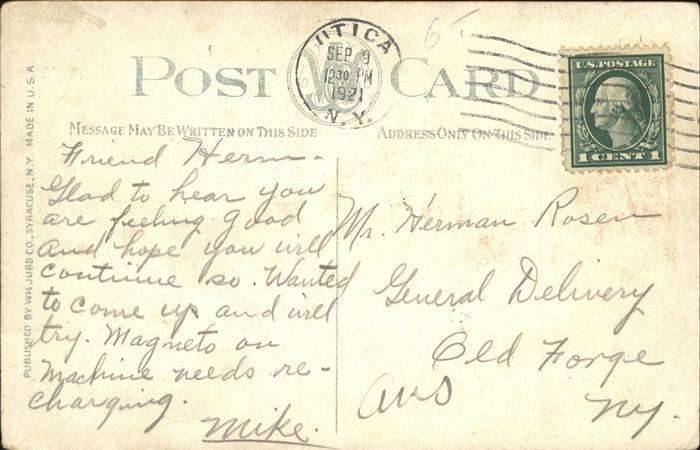 UTICA
SEP 9
12 30 PM
1921
N.Y.
POST CARD
U.S. POSTAGE
1 CENT 1
MESSAGE MAY BE WRITTEN ON THIS SIDE
ADDRESS ONLY ON THIS SIDE
PUBLISHED BY WM JUBB CO., SYRACUSE, N.Y. MADE IN U.S.A.
Friend Herm -
Glad to hear you
are feeling good
and hope you will
continue so. Wanted
to come up and will
try. Magneto on
machine needs re-
charging.
Mike.
Mr. Herman Rosen
General Delivery
Old Forge
Ans
NY.